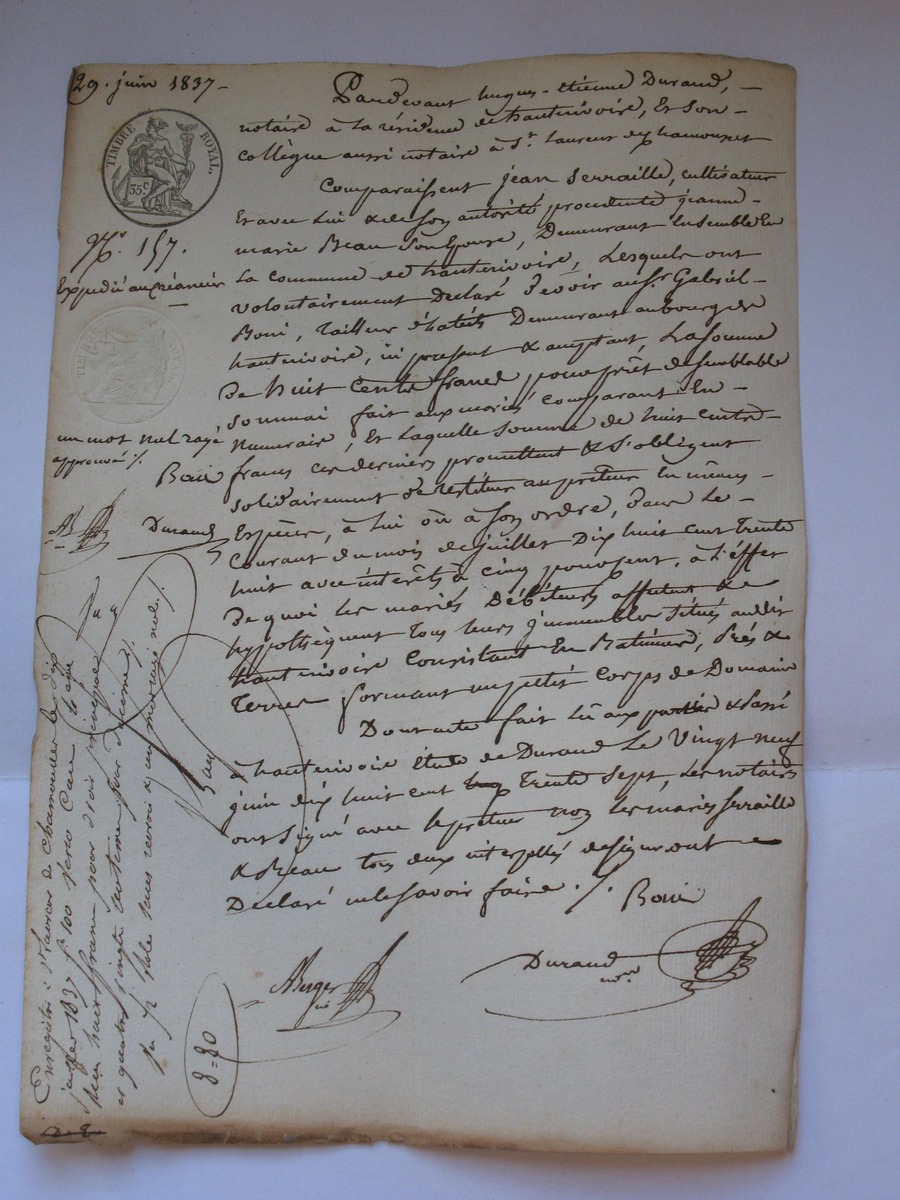 29. juin 1837 -
TIMBRE ROYAL.
35 c.
No. 157.
Expédié au créancier
TIMBRE ROYAL
un mot nul rayé
approuvé ./.
Boni
AB
Durand
Pardevant hugues-étienne Durand, -
notaire à la résidence de hauterivoire, et son -
collègue aussi notaire à St. Laurent de chamousset
Comparaissent jean Serraille, cultivateur
Et avec lui & de son autorité procedente jeanne -
marie Beau son épouse, Demeurant Ensemble En
la commune de hauterivoire, Lesquels ont
volontairement Déclaré Devoir au sr. Gabriel -
Boni, Tailleur d'habits Demeurant au bourg de
hauterivoire, ici présent & acceptant, La somme
De huit Cents francs pour prêt de semblable
somme fait aux mariés comparant En -
Numeraire, Et laquelle somme de huit cents -
francs ces derniers promettent & s'obligent
solidairement de restituer au prêteur En mêmes -
Espèces, à lui où à son ordre, Dans Le -
Courant du mois de juillet Dix huit cent Trente
huit avec intérêts à cinq pour cent, à l'éffet
De quoi les mariés Débiteurs affectent &
hypothèquent Tous leurs immeubles situés audit
hauterivoire Consistant En Batiments, Prés &
Terres formant un petit Corps de Domaine
Dont acte fait lu aux parties & passé
à hauterivoire étude de Durand Le Vingt neuf
juin dix huit cent Trente Sept, Les notaires
ont signé avec le prêteur non les mariés Serraille
& Beau tous deux interpellés de signer ont
Déclaré ne le savoir faire ./. Boni
ABerger
Durand
nore
Enregistré à St Laurent de Chamousset le dix
juillet 1837 fo 100 verso Case
reçu huit francs pour droit
et quatre vingts centimes pour décime
8=80